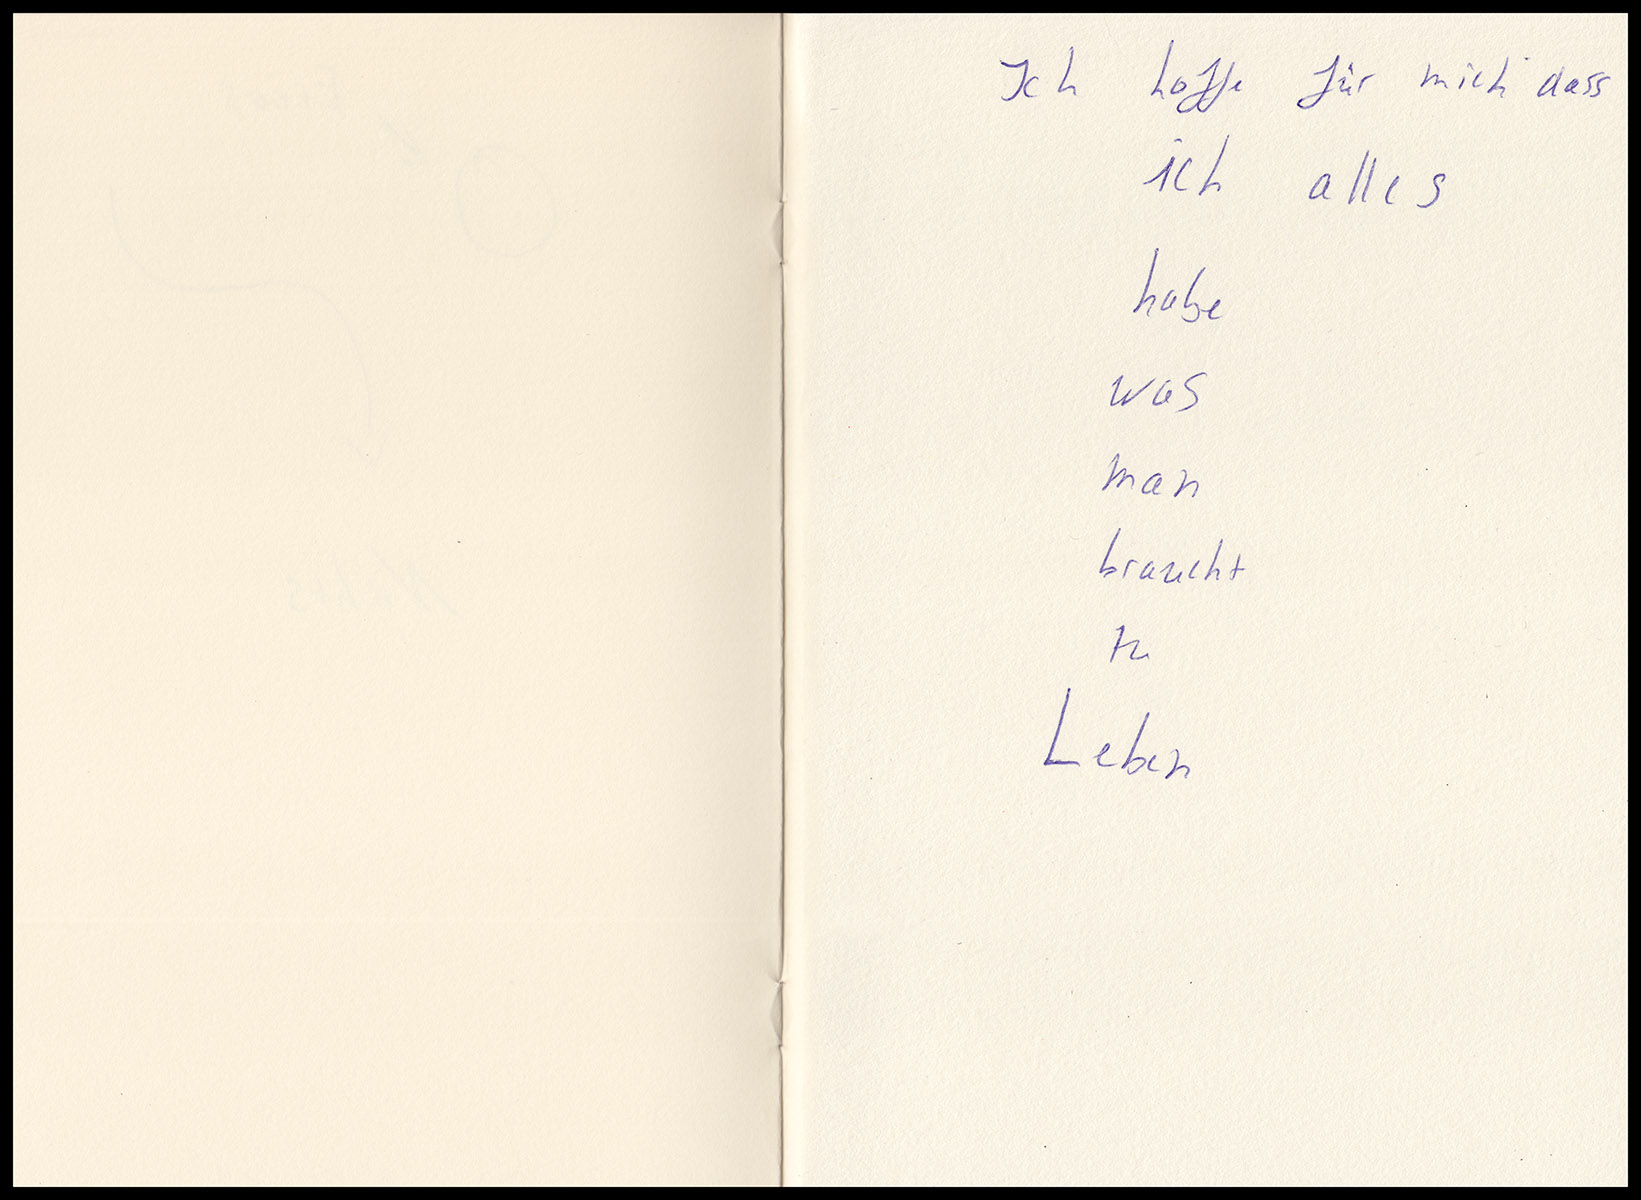 Ich hoffe für mich dass
ich alles
habe
was
man
braucht
zu
Leben